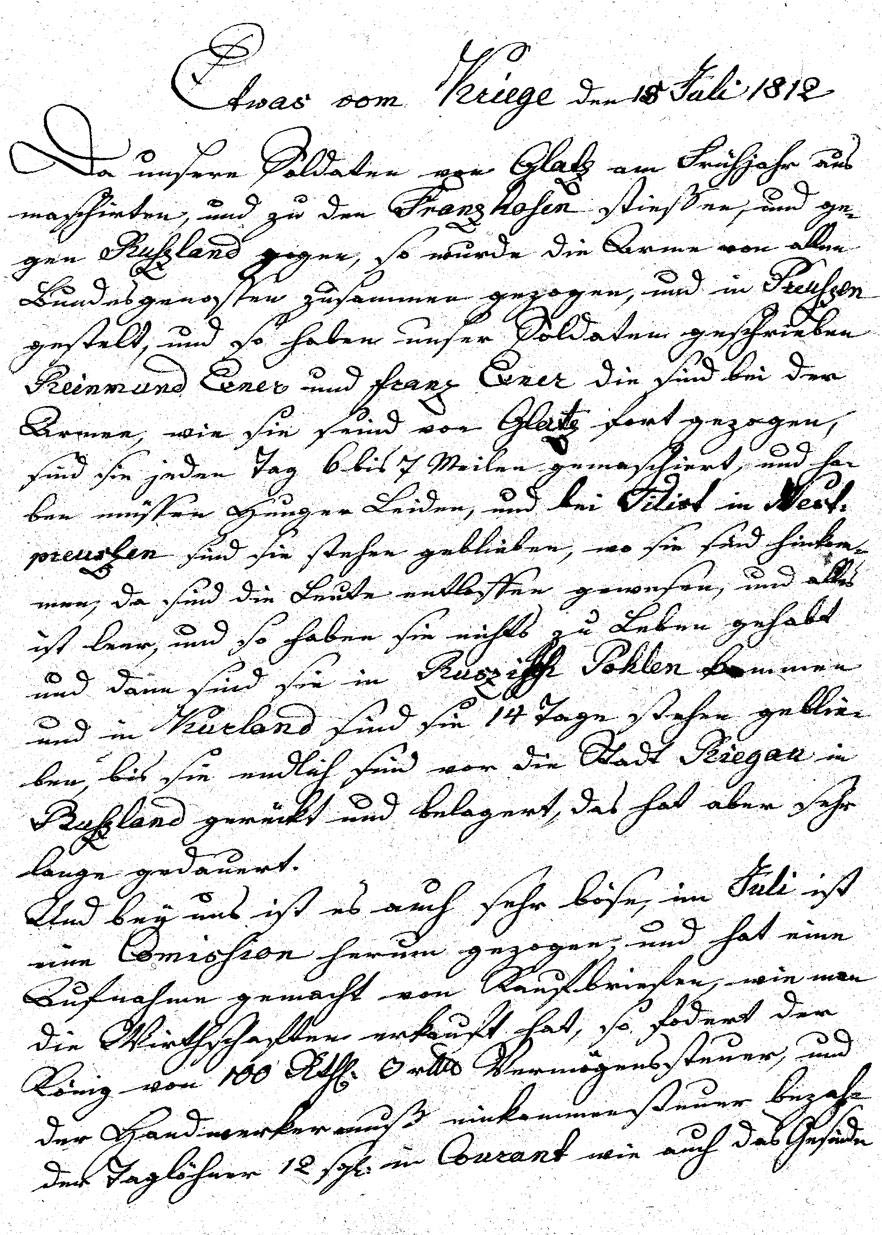 Etwas vom Kriege den 18 Juli 1812
Da unsere Soldaten von Glatz am Frühjahr aus
maschirten, und zu den Franzhosen stießen, und ge-
gen Rußland zogen, so wurde die Arme von allen
Bundesgenossen zusammen gezogen, und in Preußen
gestelt, und so haben unser Soldaten geschrieben
Reinmund Exner und franz Exner die sind bei der
Armee, wie sie seind von Glatz fort gezogen,
sind sie jeden Tag 6 bis 7 Meilen gemaschiert, und ha-
ben müssen Hunger Leiden, und bei Tilist in
preußen sind sie stehen geblieben, wo sie sind hinkom-
men, da sind die Leute entloffen gewesen, und alles
ist leer, und so haben sie nichts zu Leben gehabt
und dann sind sie in Ruszisch Pohlen kommen
und in Kurland sind sie 14 Tage stehen geblie-
ben, bis sie endlich sind vor die Stadt Riegau in
Rußland gerückt und belagert, das hat aber sehr
lange gedauert.
Und beÿ uns ist es auch sehr böse, im Juli ist
eine Comission herum gezogen, und hat eine
Aufnahme gemacht von Kaufbriefen, wie man
die Wirthschaften erkauft hat, so fodert der
König von 100 Rthl. 3 Vermögenssteuer, und
der Handwerker muß einkommensteuer bezah-
der Taglöhner 12 sgl. in Courant wie auch das Gesinde